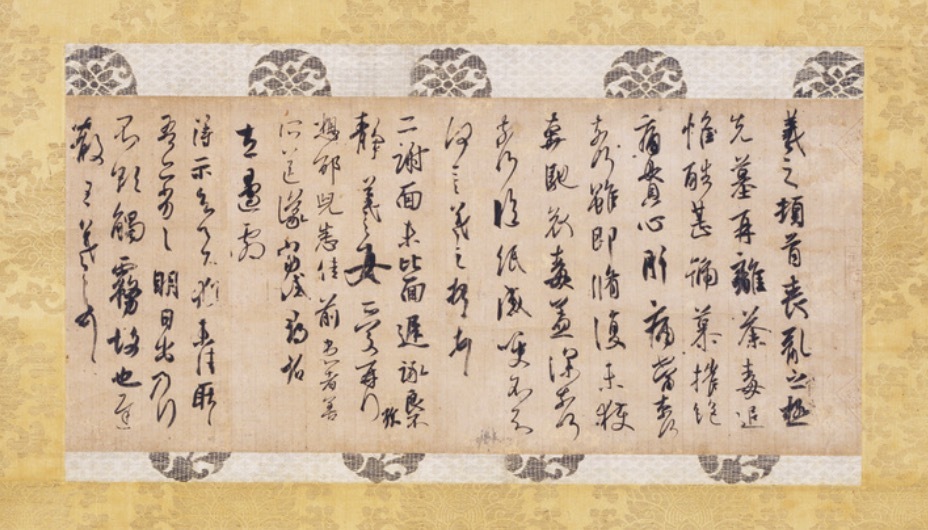 羲之頓首喪亂之極
先墓再離荼毒追
惟酷甚號慕摧絕
痛貫心肝痛當奈何
奈何雖即脩復未獲
奔馳哀毒益深奈何
奈何臨紙感哽不知
何言羲之頓首頓首
二謝面未比面遲詠良不
靜羲之女愛再拜
想邵兒悉佳前患者善
送議當
左邊劇
得示知足下猶未佳耿耿
吾亦劣劣明日出乃行
不欲觸霧故也遲
散王羲之頓首